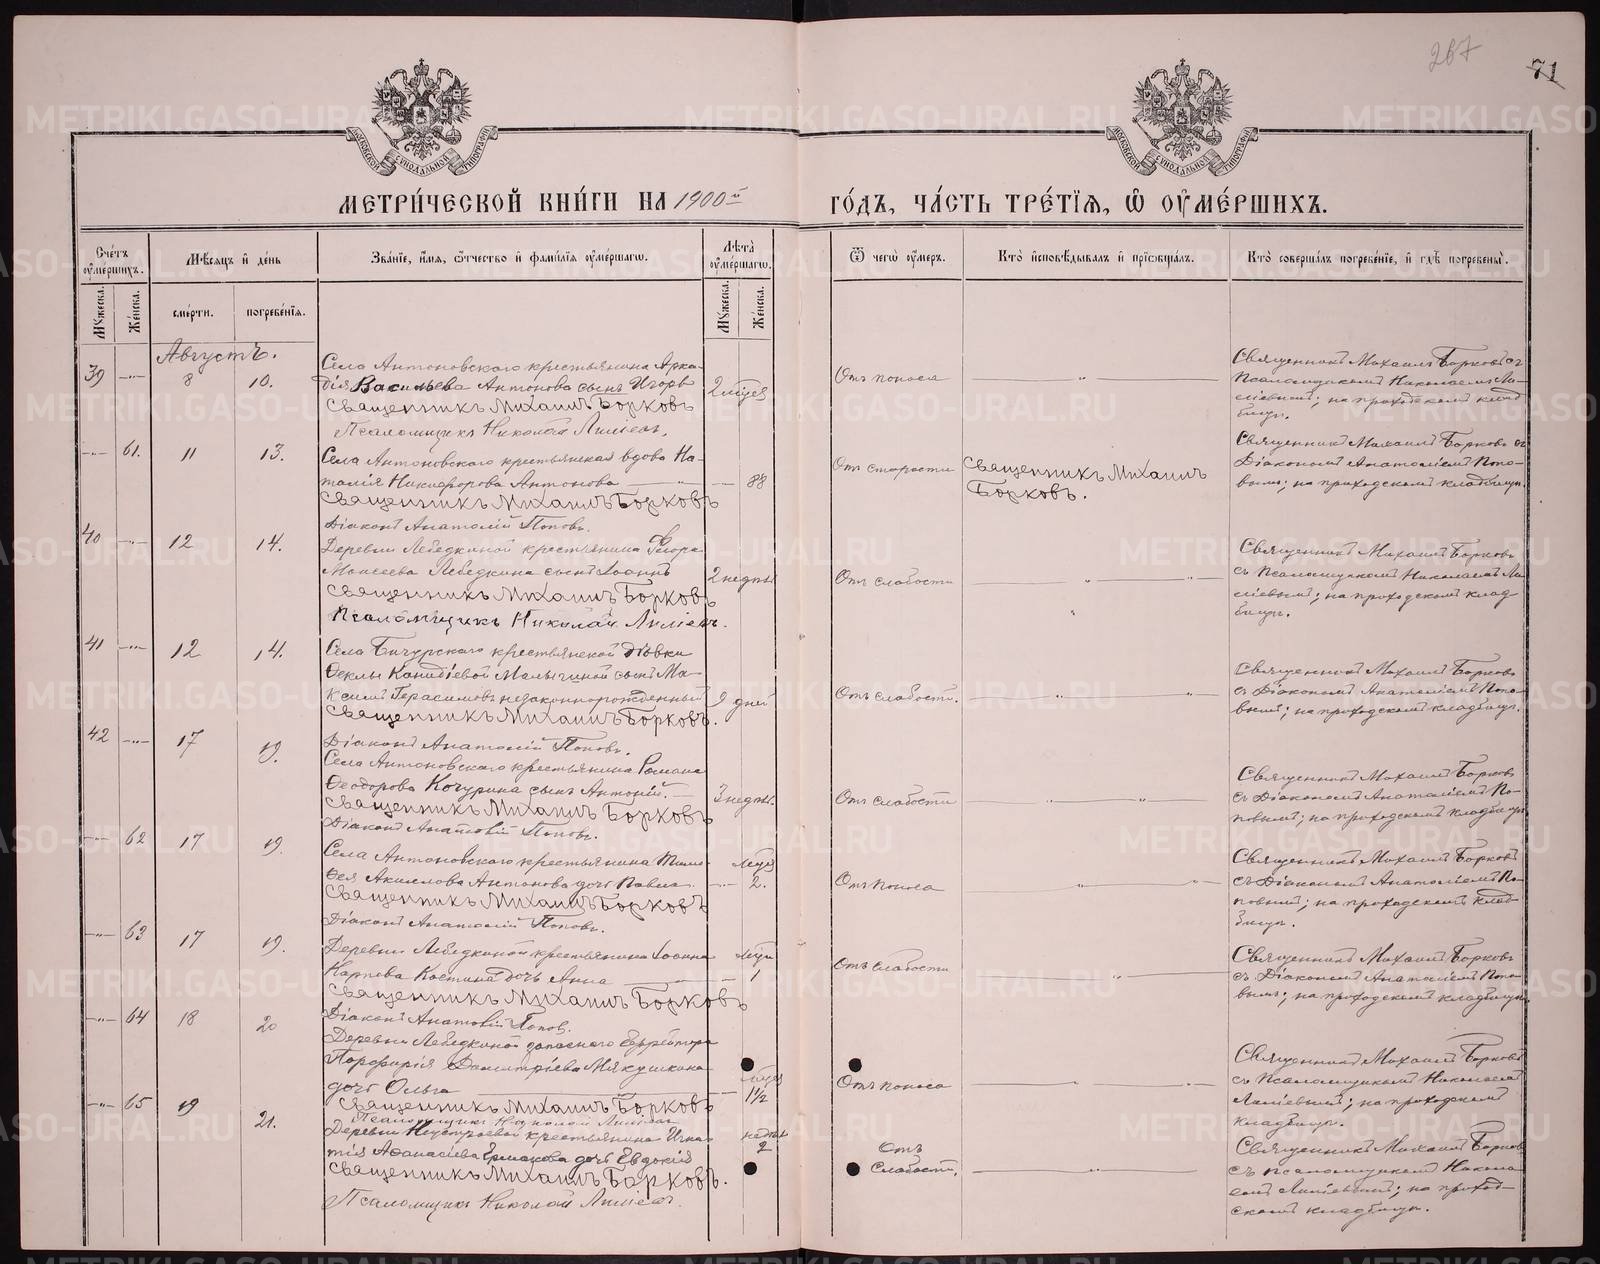 267
71
МОСКОВСКОЙ СѴНОДАЛЬНОЙ ТИПОГРАФІИ
МОСКОВСКОЙ СѴНОДАЛЬНОЙ ТИПОГРАФІИ
МЕТРИ́ЧЕСКОЙ КНИ́ГИ НА 1900й ГО́ДЪ, ЧА́СТЬ ТРЕ́ТІЯ, Ѿ ОУМЕ́РШИХЪ.
Сче́тъ оуме́ршихъ.
Мѣсяцъ и де́нь
Зва́ніе, и́мя, ѻтчество и фами́лія оуме́ршагѡ.
Лѣта̀ оуме́ршагѡ.
Ѿ чегѡ̀ оу́меръ.
Кто̀ исповѣ́дывалъ и пріѡбща́лъ.
Кто̀ соверша́лъ погребе́ніе, и гдѣ̀ погребены̀.
Му́жеска.
Же́нска.
сме́рти.
погребе́нія.
Му́жеска.
Же́нска.
Августъ.
39 -„- 8 10.
Села Антоновскаго крестьянина Арка-
дія Васильева Антонова сынъ Игорь
Священникъ Михаилъ Борковъ
Псаломщикъ Николай
2 мѣсяц
Отъ поноса
Священникъ Михаилъ Борковъ съ
Псаломщикомъ Николаемъ
на приходскомъ клад
бищѣ.
-„- 61. 11 13.
Села Антоновскаго крестьянская вдова На-
талія Никифорова Антонова
Священникъ Михаилъ Борковъ
Діаконъ Анатолій Поповъ.
88
Отъ старости
Священникъ Михаилъ
Борковъ.
Священникъ Михаилъ Борковъ съ
Діакономъ Анатоліемъ Попо-
вымъ; на приходскомъ кладбищѣ.
40 -„- 12 14.
Деревни Лебедкиной крестьянина
Моисеева Лебедкина сынъ Іоаннъ
Священникъ Михаилъ Борковъ
Псаломщикъ Николай
2 недѣли
Отъ слабости
Священникъ Михаилъ Борковъ
съ Псаломщикомъ Николаемъ
на приходскомъ клад
бищѣ.
41 -„- 12 14.
Села Бичурскаго крестьянской дѣвки
Феклы Малыгиной сынъ Ма-
ксимъ Герасимовъ незаконнорожденный
Священникъ Михаилъ Борковъ.
Діаконъ Анатолій Поповъ.
9 дней
Отъ слабости.
Священникъ Михаилъ Борковъ
съ Діакономъ Анатоліемъ Попо-
вымъ; на приходскомъ кладбищѣ.
42 -„- 17 19.
Села Антоновскаго крестьянина Романа
Феодорова Кочурина сынъ Антоній.
Священникъ Михаилъ Борковъ
Діаконъ Анатолій Поповъ.
3 недѣли.
Отъ слабости
Священникъ Михаилъ Борковъ
съ Діакономъ Анатоліемъ По-
повымъ; на приходскомъ кладбищѣ
-„- 62 17 19.
Села Антоновскаго крестьянина Тимо-
фея Антонова дочь
Священникъ Михаилъ Борковъ
Діаконъ Анатолій Поповъ.
мѣсяц
2.
Отъ поноса
Священникъ Михаилъ Борковъ
съ Діакономъ Анатоліемъ По-
повымъ; на приходскомъ клад-
бищѣ.
-„- 63 17 19.
Деревни Лебедкиной крестьянина Іоанна
Карпова Костина дочь Анна
Священникъ Михаилъ Борковъ
Діаконъ Анатолій Попов.
1
Отъ слабости
Священникъ Михаилъ Борковъ
съ Діакономъ Анатоліемъ Попо-
вымъ; на приходскомъ кладбищѣ.
-„- 64 18 20
Деревни Лебедкиной запаснаго Ефрейтора
Порфирія Димитріева Мякушкина
дочь Ольга
Священникъ Михаилъ Борковъ
Псаломщикъ Николай
мѣсяц
1½
Отъ поноса
Священникъ Михаилъ Борковъ
съ Псаломщикомъ Николаемъ
на приходскомъ
кладбищѣ.
-„- 65 19 21.
Деревни крестьянина Игна-
тія Афанасіева Ермакова дочь Евдокія
Священникъ Михаилъ Борковъ.
Псаломщикъ Николай
недѣли
2
Отъ
слабости.
Священникъ Михаилъ Борковъ
съ псаломщикомъ Никола-
емъ на приход-
скомъ кладбищѣ.
METRIKI.GASO-URAL.RU